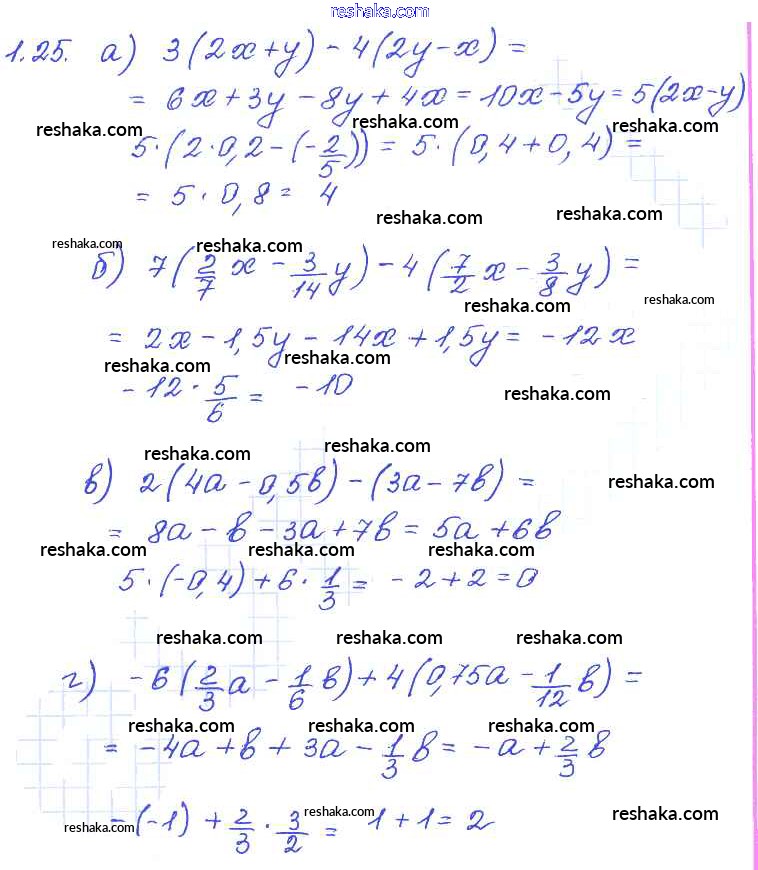 reshaka.com
1.25. а) 3(2x+y) - 4(2y-x) =
= 6x + 3y - 8y + 4x = 10x - 5y = 5(2x-y)
reshaka.com reshaka.com reshaka.com
5·(2·0,2-(-2/5)) = 5·(0,4+0,4) =
= 5·0,8 = 4
reshaka.com reshaka.com
reshaka.com reshaka.com
б) 7(2/7 x - 3/14 y) - 4(7/2 x - 3/8 y) =
reshaka.com reshaka.com
= 2x - 1,5y - 14x + 1,5y = -12x
reshaka.com reshaka.com
-12·5/6 = -10
reshaka.com
reshaka.com reshaka.com
в) 2(4a - 0,5b) - (3a - 7b) =
reshaka.com
= 8a - b - 3a + 7b = 5a + 6b
reshaka.com reshaka.com reshaka.com
5·(-0,4) + 6·1/3 = -2 + 2 = 0
reshaka.com reshaka.com reshaka.com
г) -6(2/3 a - 1/6 b) + 4(0,75a - 1/12 b) =
reshaka.com reshaka.com reshaka.com
= -4a + b + 3a - 1/3 b = -a + 2/3 b
reshaka.com reshaka.com
-(-1) + 2/3 · 3/2 = 1 + 1 = 2
reshaka.com